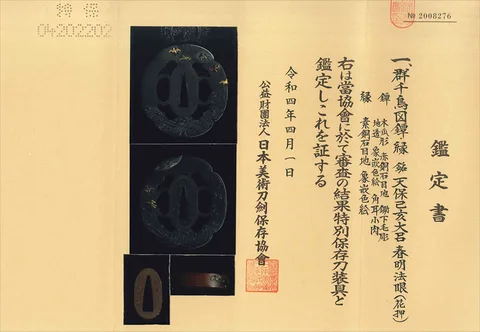 № 2008276
鑑定書
一、群千鳥図鐔・縁 銘 天保己亥大呂 春明法眼(花押)
鐔 木瓜形 赤銅石目地 鋤下毛彫
地透 象嵌色絵 角耳小肉
縁 素銅石目地 象嵌色絵
右は當協會に於て審査の結果特別保存刀装具と
鑑定しこれを証する
令和四年四月一日
公益財團法人 日本美術刀劍保存協會
特保
04202202